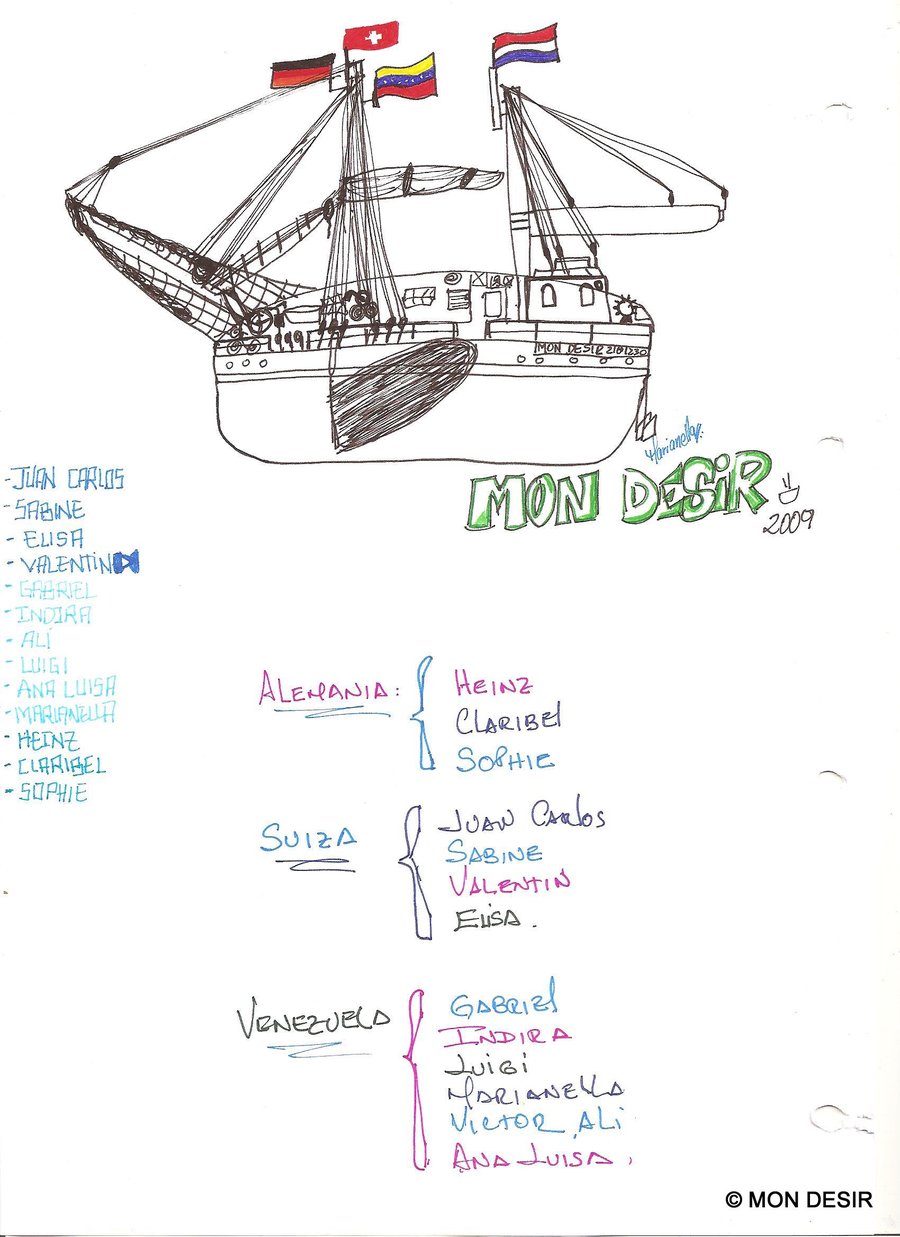 MON DESIR 2181230
Marianella
MON DESIR
2009
- JUAN CARLOS
- SABINE
- ELISA
- VALENTIN
- GABRIEL
- INDIRA
- ALÍ
- LUIGI
- ANA LUISA
- MARIANELLA
- HEINZ
- CLARIBEL
- SOPHIE
ALEMANIA:
HEINZ
CLARIBEL
SOPHIE
SUIZA
JUAN CARLOS
SABINE
VALENTIN
ELISA.
VENEZUELA
GABRIEL
INDIRA
LUIGI
MARIANELLA
VICTOR ALI
ANA LUISA.
© MON DESIR